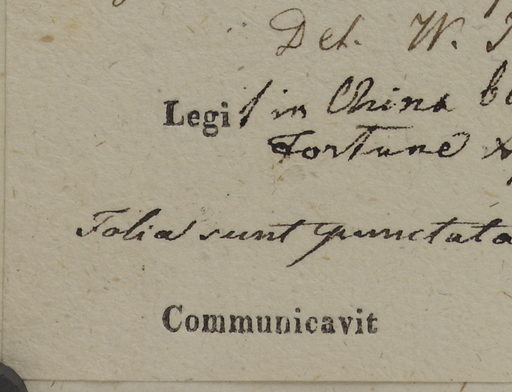 Det. W.
Legit in China
Fortune
Folia sunt punctata
Communicavit